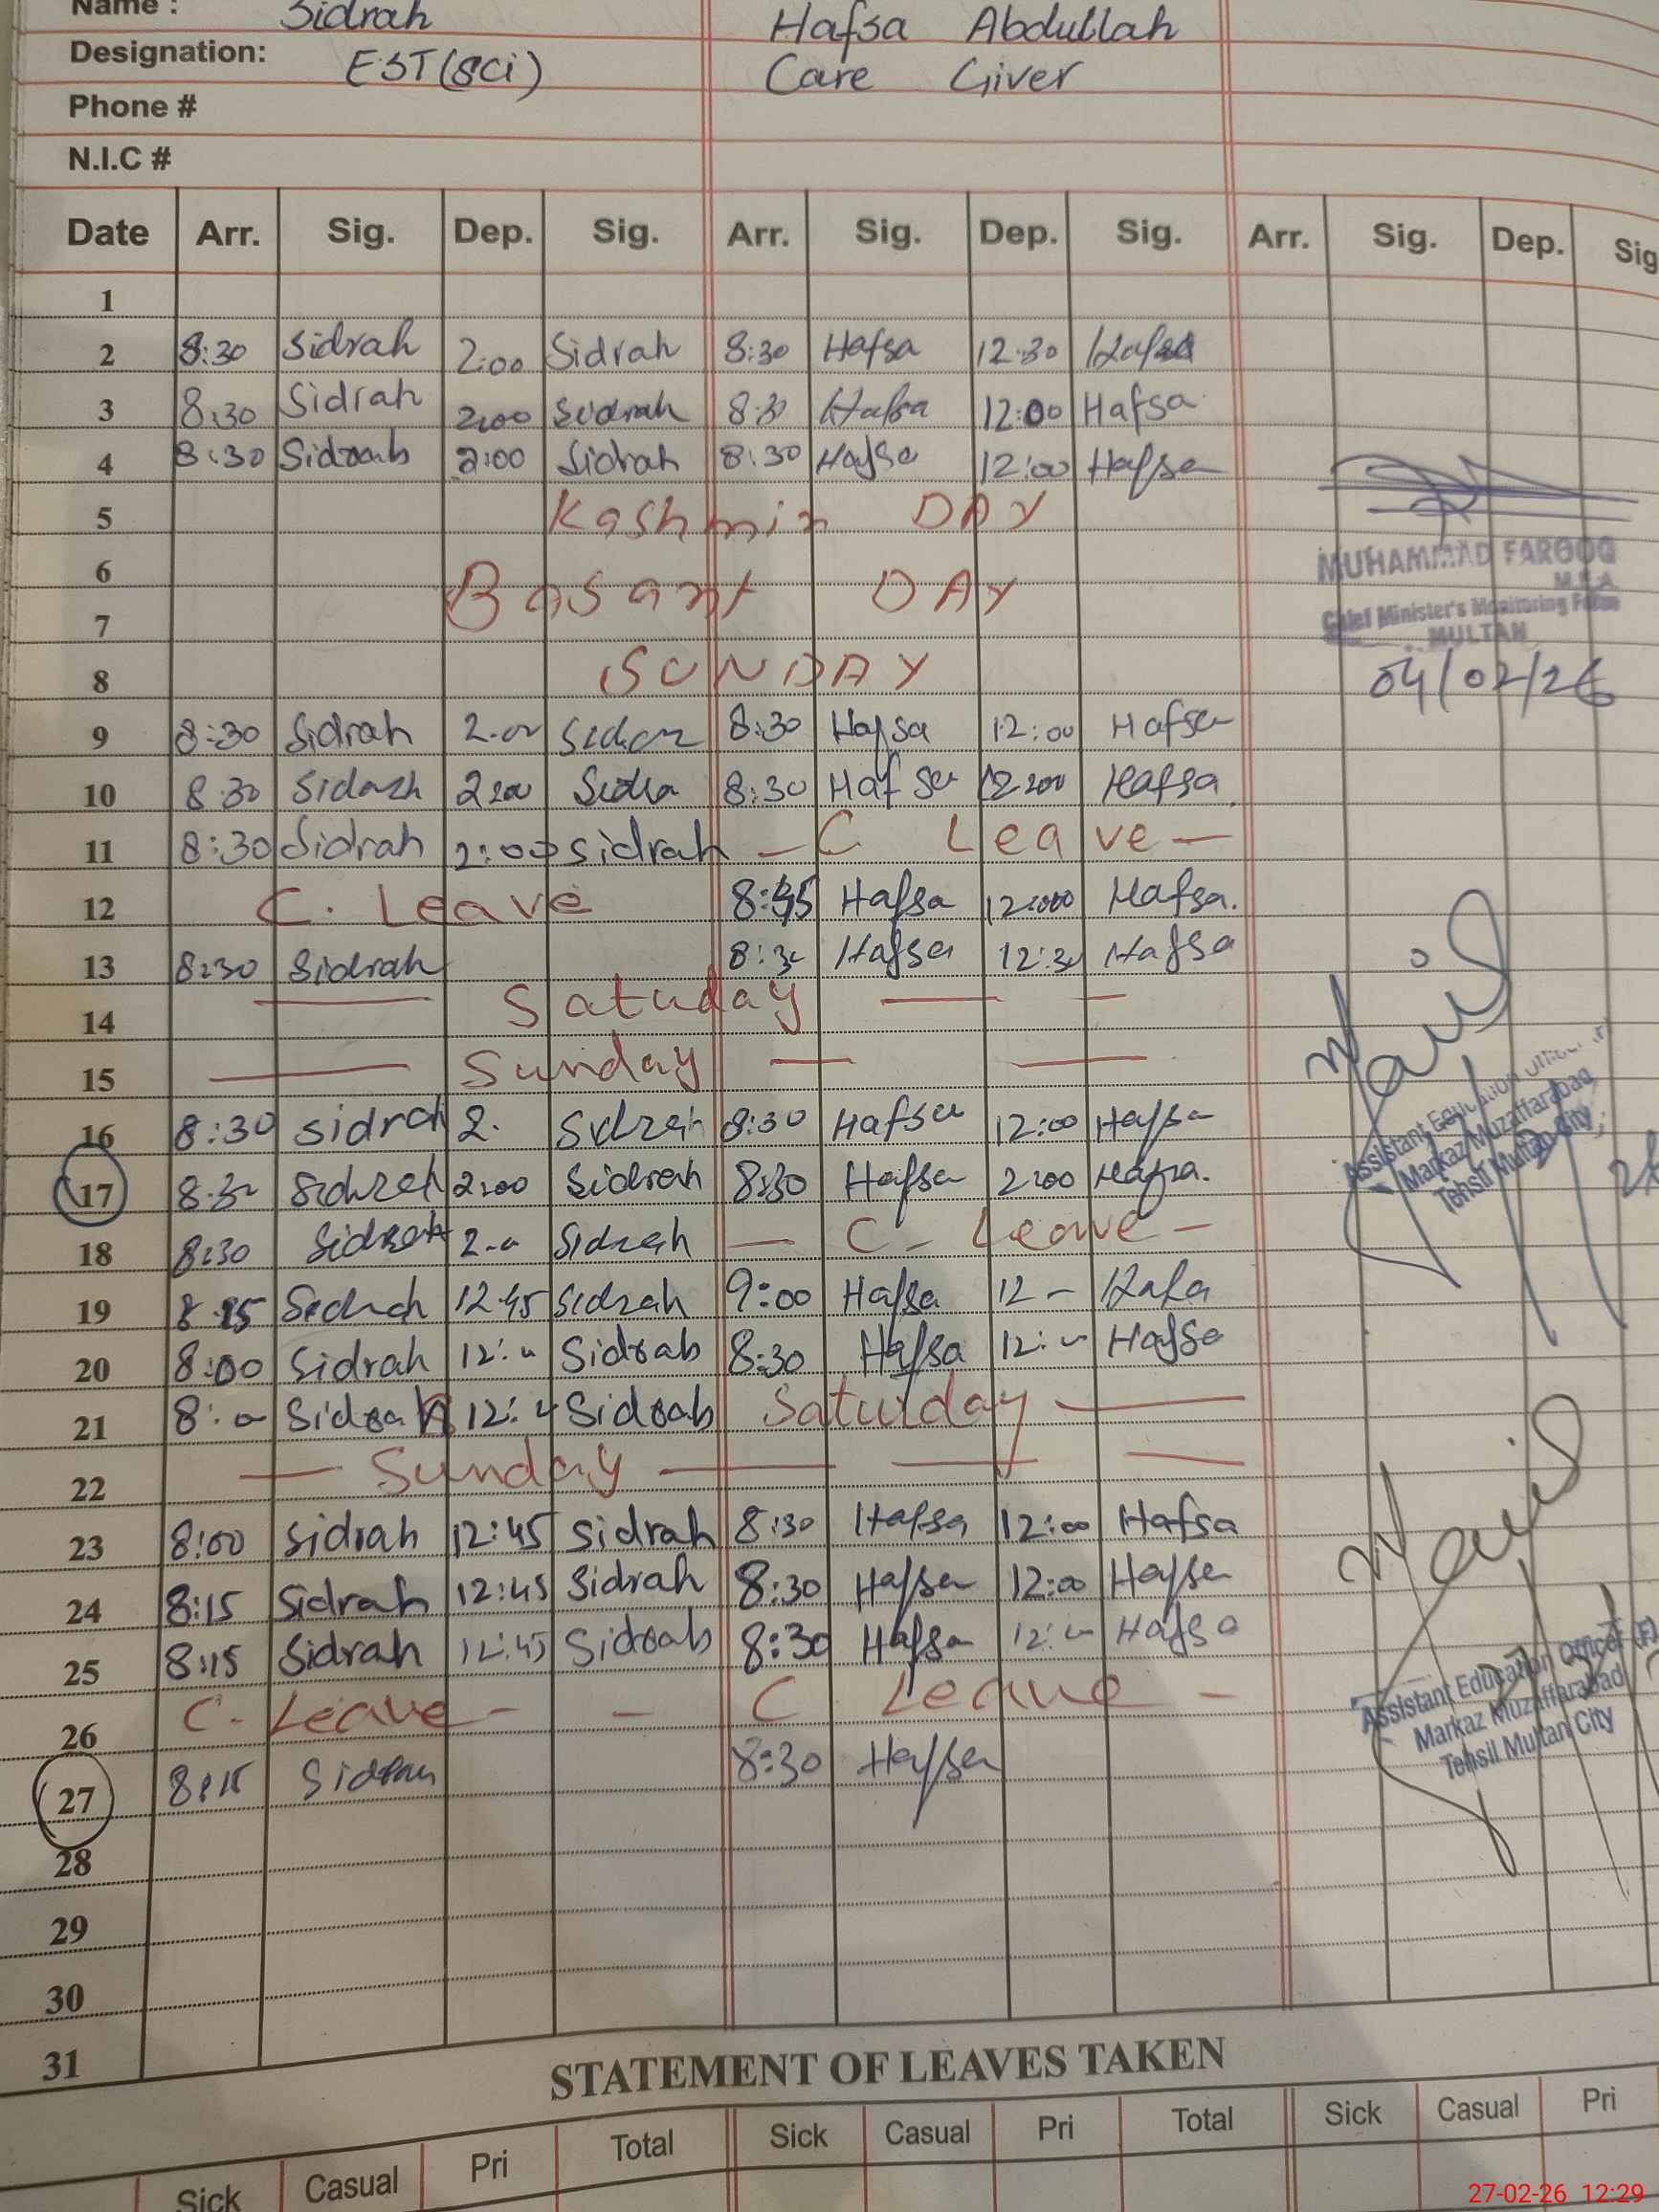 Name : Sidrah Hafsa Abdullah
Designation: EST(Sci) Care Giver
Phone #
N.I.C #
Date Arr. Sig. Dep. Sig. Arr. Sig. Dep. Sig. Arr. Sig. Dep. Sig
1
2 8:30 Sidrah 2:00 Sidrah 8:30 Hafsa 12:30 Hafsa
3 8:30 Sidrah 2:00 Sidrah 8:30 Hafsa 12:00 Hafsa
4 8:30 Sidrah 2:00 Sidrah 8:30 Hafsa 12:00 Hafsa
5 Kashmir DAY
6
Basant DAY
7
8 SUNDAY
9 8:30 Sidrah 2:00 Sidra 8:30 Hafsa 12:00 Hafsa
10 8:30 Sidrah 2:00 Sidra 8:30 Hafsa 12:00 Hafsa
11 8:30 Sidrah 2:00 Sidrah - C Leave -
12 C. Leave 8:45 Hafsa 12:00 Hafsa.
13 8:30 Sidrah 8:30 Hafsa 12:30 Hafsa
14 Satuday
15 Sunday
16 8:30 Sidrah 2. Sidrah 8:30 Hafsa 12:00 Hafsa
17 8:30 Sidrah 2:00 Sidrah 8:30 Hafsa 2:00 Hafsa.
18 8:30 Sidrah 2- Sidrah - C- Leave -
19 8:15 Sidrah 12:45 Sidrah 9:00 Hafsa 12 - Hafsa
20 8:00 Sidrah 12: Sidrah 8:30 Hafsa 12: Hafsa
21 8: Sidrah 12: Sidrah Saturday
22 Sunday
23 8:00 Sidrah 12:45 Sidrah 8:30 Hafsa 12:00 Hafsa
24 8:15 Sidrah 12:45 Sidrah 8:30 Hafsa 12:00 Hafsa
25 8:15 Sidrah 12:45 Sidrah 8:30 Hafsa 12: Hafsa
26 C. Leave - - C Leave -
27 8:15 Sidrah 8:30 Hafsa
28
29
30
31
MUHAMMAD FAROOQ
M.E.A.
Chief Minister's Monitoring Force
MULTAN
04/02/26
Assistant Education Officer
Markaz Muzaffarabad
Tehsil Multan City
Assistant Education Officer (F)
Markaz Muzaffarabad
Tehsil Multan City
STATEMENT OF LEAVES TAKEN
Sick Casual Pri Total Sick Casual Pri Total Sick Casual Pri
27-02-26 12:29